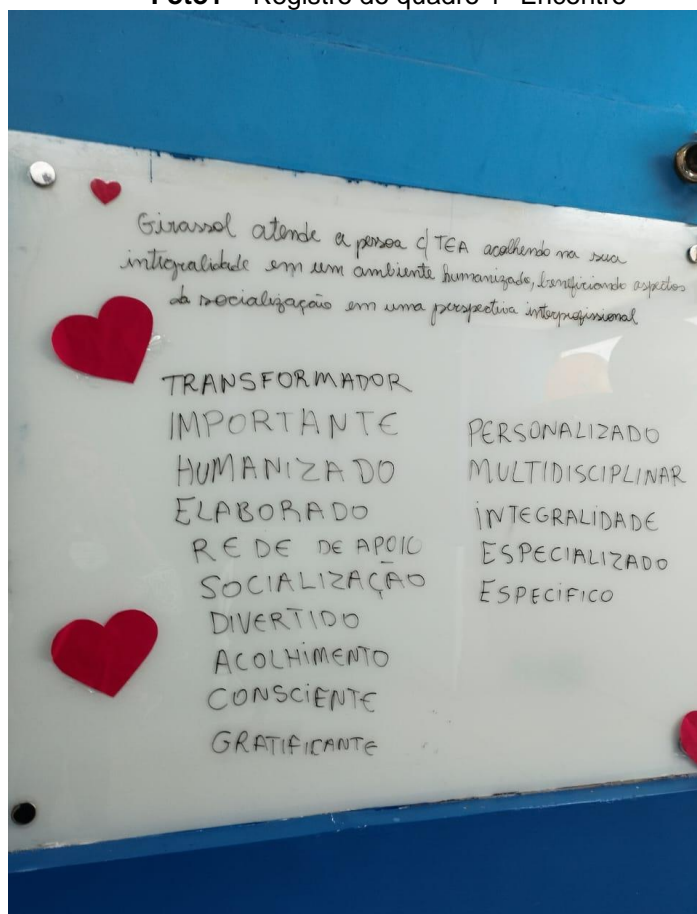 Foto1 – Registro do quadro 1º Encontro
Girassol atende a pessoa c/ TEA acolhendo na sua
integralidade em um ambiente humanizado, beneficiando aspectos
da socialização em uma perspectiva interprofissional
TRANSFORMADOR
IMPORTANTE
HUMANIZADO
ELABORADO
REDE DE APOIO
SOCIALIZAÇÃO
DIVERTIDO
ACOLHIMENTO
CONSCIENTE
GRATIFICANTE
PERSONALIZADO
MULTIDISCIPLINAR
INTEGRALIDADE
ESPECIALIZADO
ESPECÍFICO